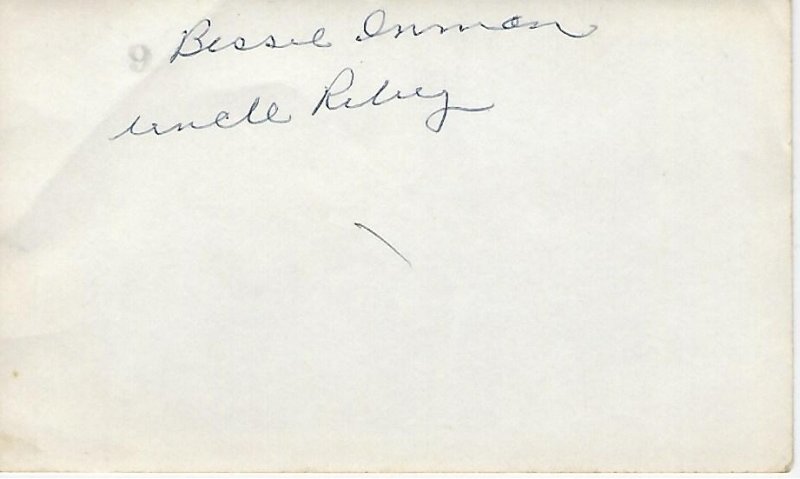 Bessie Inman
9
uncle